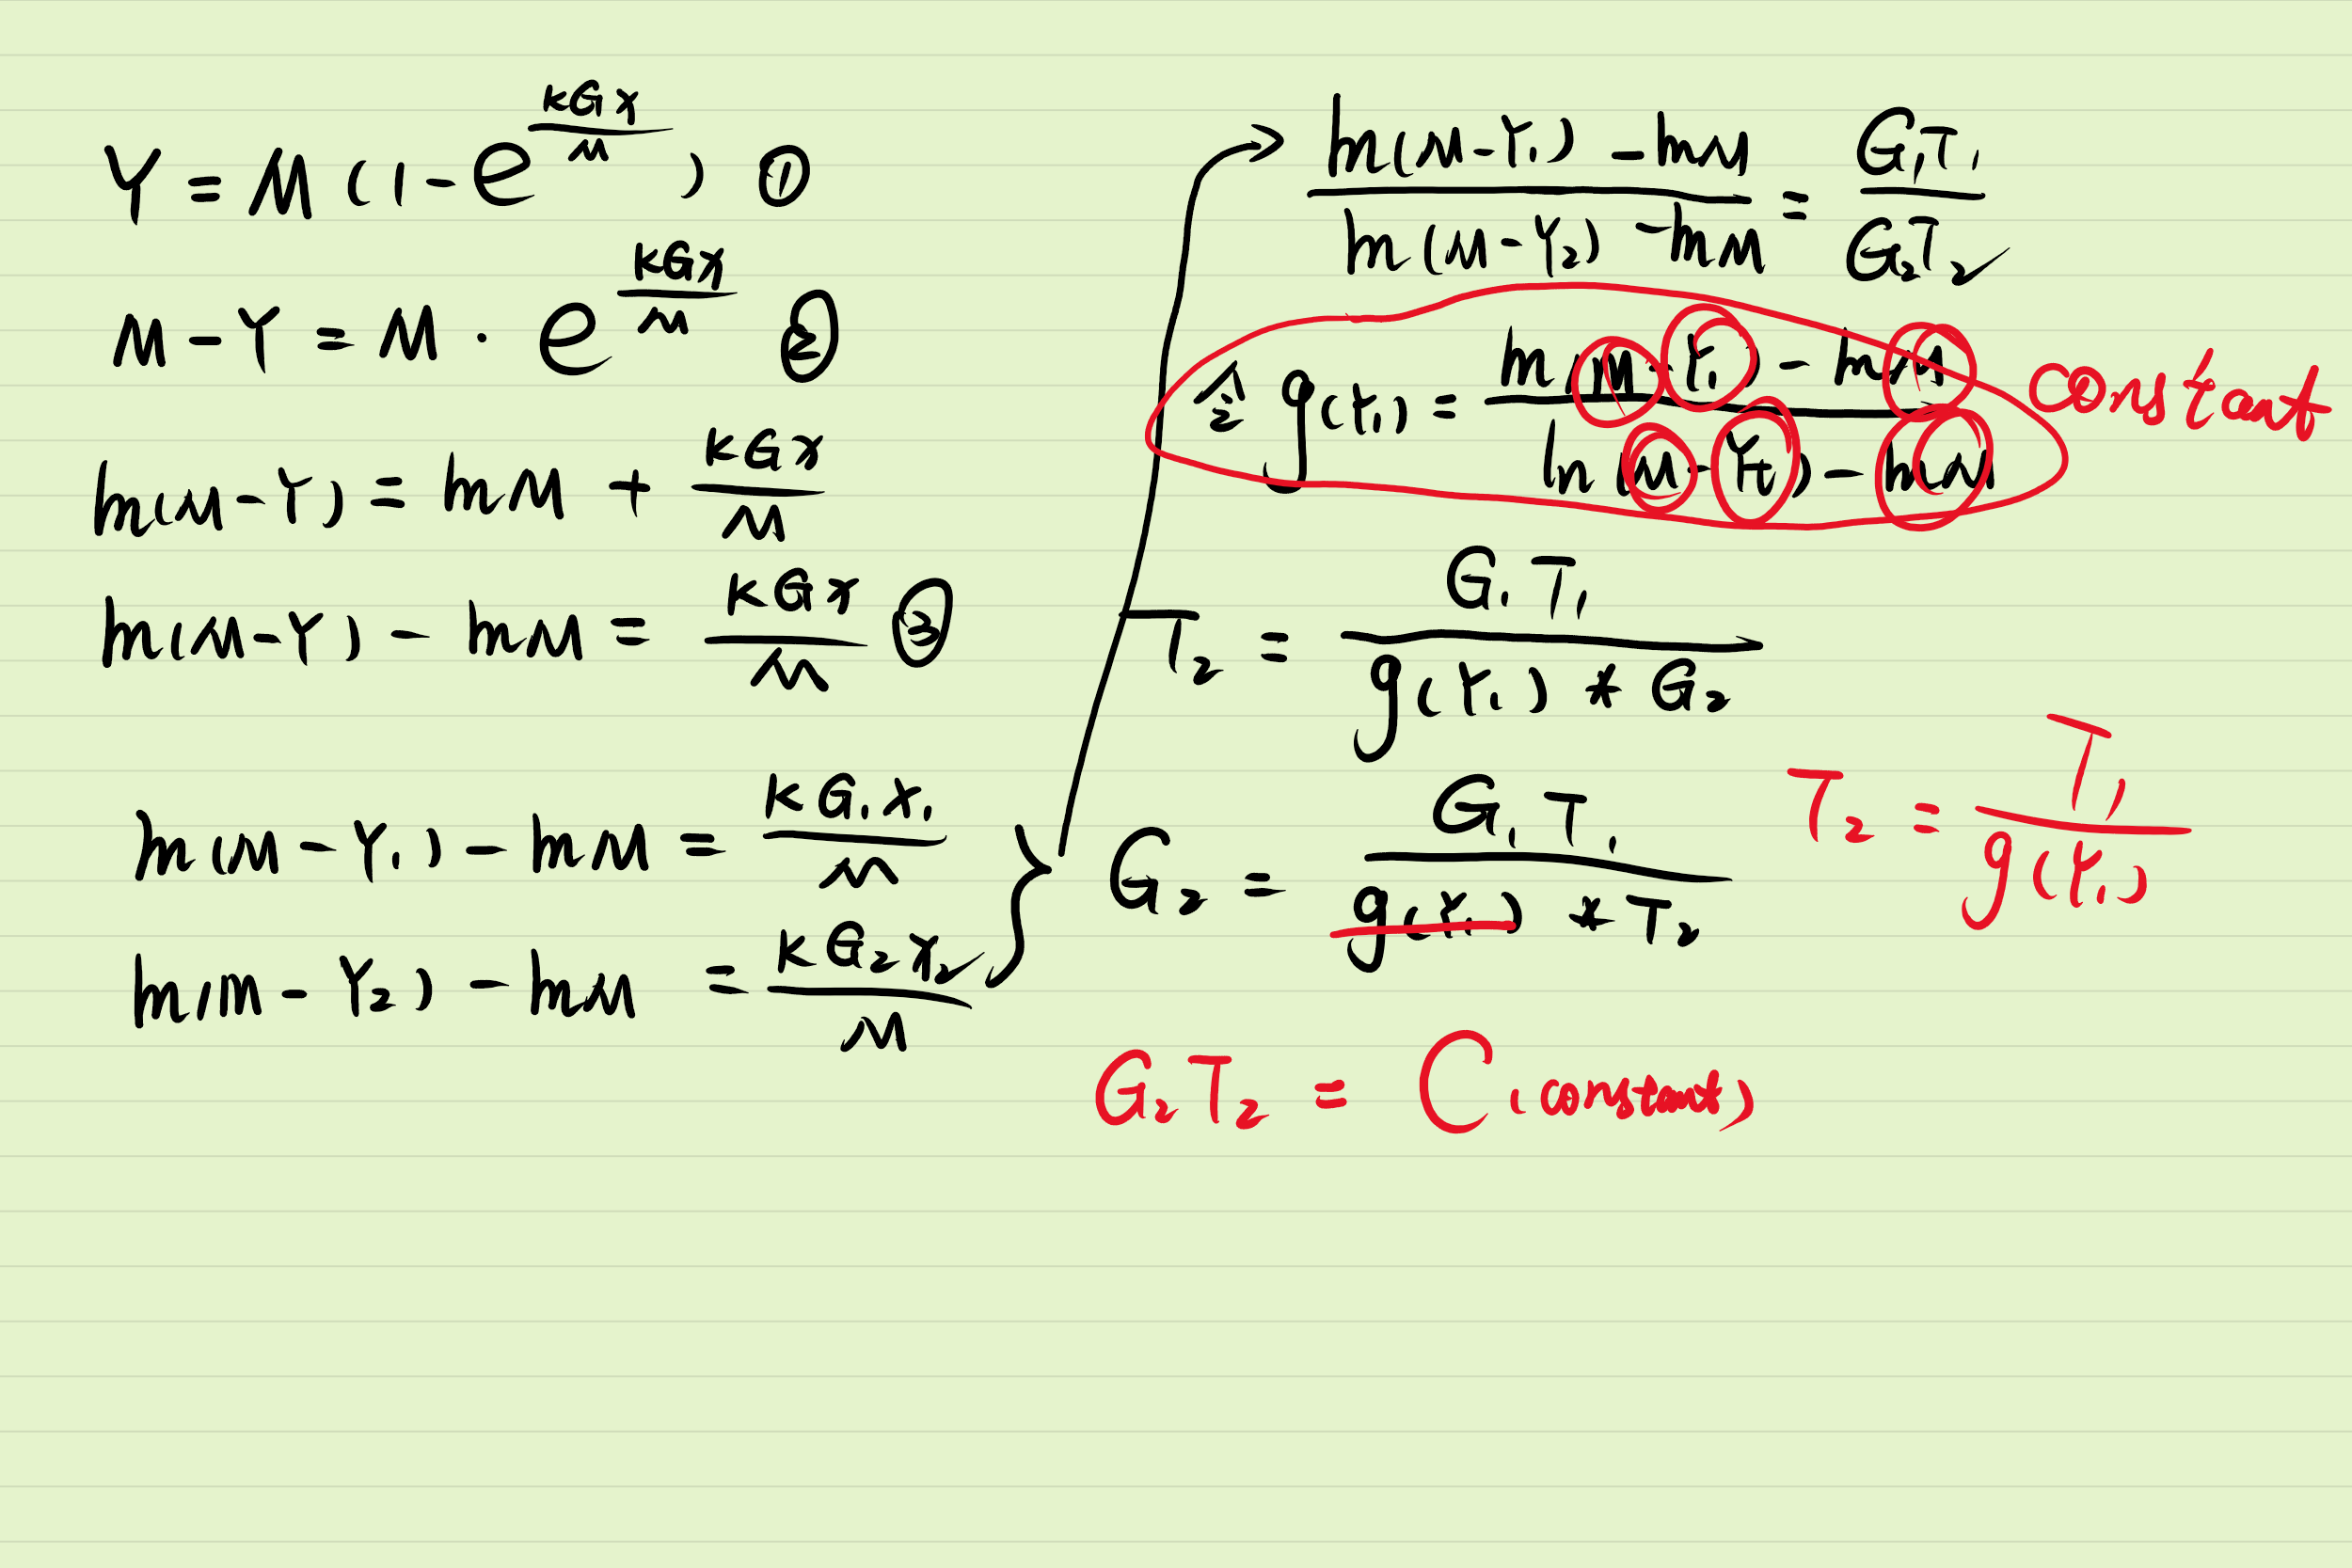 Y = M (1 - e^{\frac{kGx}{M}}) ①
M - Y = M · e^{\frac{kGx}{M}} ②
ln(M - Y) = lnM + \frac{kGx}{M}
ln(M - Y) - lnM = \frac{kGx}{M} ③
ln(M - Y₁) - lnM = \frac{kG₁x₁}{M}
ln(M - Y₂) - lnM = \frac{kG₂x₂}{M}
\frac{ln(M - Y₁) - lnM}{ln(M - Y₂) - lnM} = \frac{G₁T₁}{G₂T₂}
令 g(Y₁) = \frac{ln(M - Y₁) - lnM}{ln(M - Y₂) - lnM} constant
T₂ = \frac{G₁T₁}{g(Y₁) * G₂}
G₂ = \frac{G₁T₁}{g(Y₁) * T₂}
T₂ = \frac{T₁}{g(Y₁)}
G₂T₂ = C (constant)